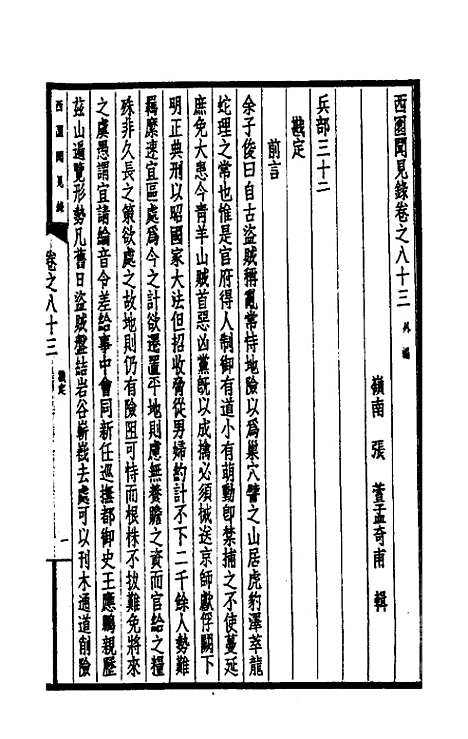 西園聞見錄卷之八十三 外編
嶺南 張 萱孟奇甫 輯
兵部三十二
戡定
前言
余子俊曰自古盜賊稱亂常恃地險以為巢穴譬之山居虎豹澤萃龍
蛇理之常也惟是官府得人制御有道小有萌動卽禁捕之不使蔓延
庶免大患今青羊山賊首惡凶黨旣以成擒必須械送京師獻俘闕下
明正典刑以昭國家大法但招收脅從男婦約計不下二千餘人勢難
羈縻速宜區處為今之計欲遷置平地則慮無養贍之資而官給之糧
殊非久長之策欲處之故地則仍有險阻可恃而根株不拔難免將來
之虞愚謂宜請綸音令差給事中會同新任巡撫都御史王應鵬親歷
茲山遍覽形勢凡舊日盜賊盤詰岩谷嶄嶻去處可以刊木通道削險
西園聞見錄 卷之八十三 戡定 一